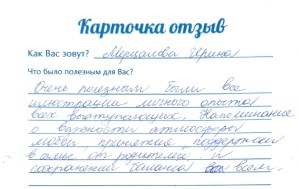 Карточка отзыв
Как Вас зовут? Мерцалова Ирина
Что было полезным для Вас?
Очень полезным были все
иллюстрации личного опыта
всех выступающих. Напоминание
о важности атмосферы
любви, принятия, поддержки
в семье от родителей. и
сохранении баланса во всем.